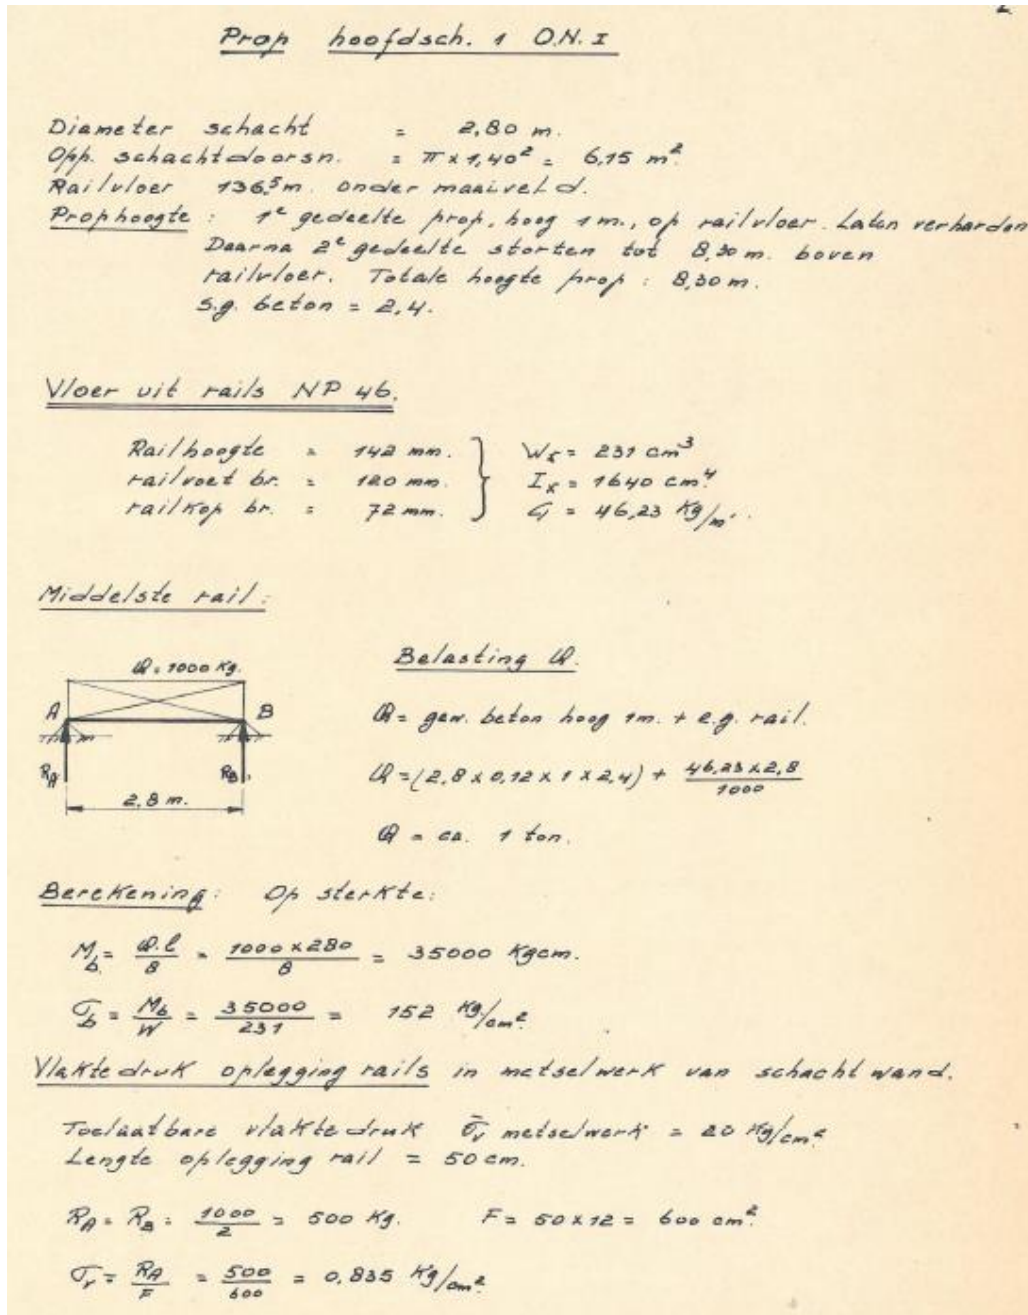 2
Prop hoofdsch. 1 O.N. I
Diameter schacht = 2,80 m.
Opp. schachtdoorsn. = π x 1,40² = 6,15 m²
Railvloer 136,5 m. onder maaiveld.
Prophoogte : 1e gedeelte prop, hoog 1 m., op railvloer. Laten verharden
Daarna 2e gedeelte storten tot 8,30 m. boven
railvloer. Totale hoogte prop : 8,30 m.
s.g. beton = 2,4.
Vloer uit rails NP 46.
Railhoogte = 142 mm. } Wx = 231 cm³
railvoet br. = 120 mm. } Ix = 1640 cm⁴
railkop br. = 72 mm. } G = 46,23 Kg/m'.
Middelste rail :
Q = 1000 Kg.
A B
RA RB
2,8 m.
Belasting Q.
Q = gew. beton hoog 1m. + e.g. rail.
Q = (2,8 x 0,12 x 1 x 2,4) + 46,23 x 2,8 / 1000
Q = ca. 1 ton.
Berekening : Op sterkte :
Mb = Q.l / 8 = 1000 x 280 / 8 = 35000 Kgcm.
σb = Mb / W = 35000 / 231 = 152 Kg/cm²
Vlaktedruk oplegging rails in metselwerk van schachtwand.
Toelaatbare vlaktedruk σ̄v metselwerk = 20 Kg/cm²
Lengte oplegging rail = 50 cm.
RA = RB = 1000 / 2 = 500 Kg. F = 50 x 12 = 600 cm²
σv = RA / F = 500 / 600 = 0,835 Kg/cm²